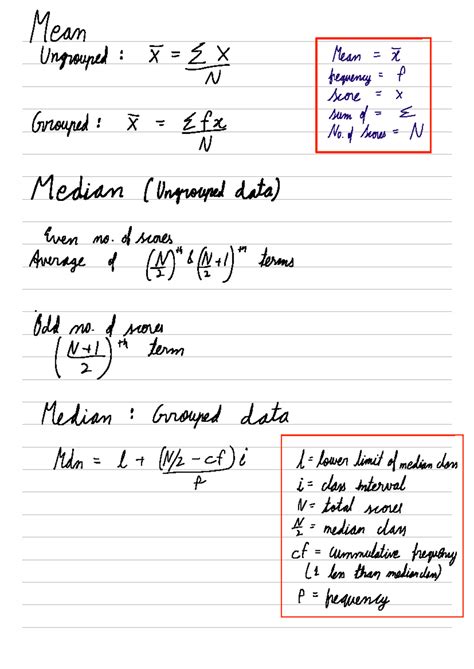 Mean
Ungrouped : x̄ = Σ X / N
Mean = x̄
frequency = f
score = x
sum of = Σ
No. of scores = N
Grouped : x̄ = Σfx / N
Median (Ungrouped data)
Even no. of scores
Average of (N/2)th & (N/2 + 1)th terms
Odd no. of scores
(N+1 / 2)th term
Median : Grouped data
Mdn = l + (N/2 - cf / f) i
l = lower limit of median class
i = class interval
N = total scores
N/2 = median class
cf = cummulative frequency
(1 less than median class)
f = frequency